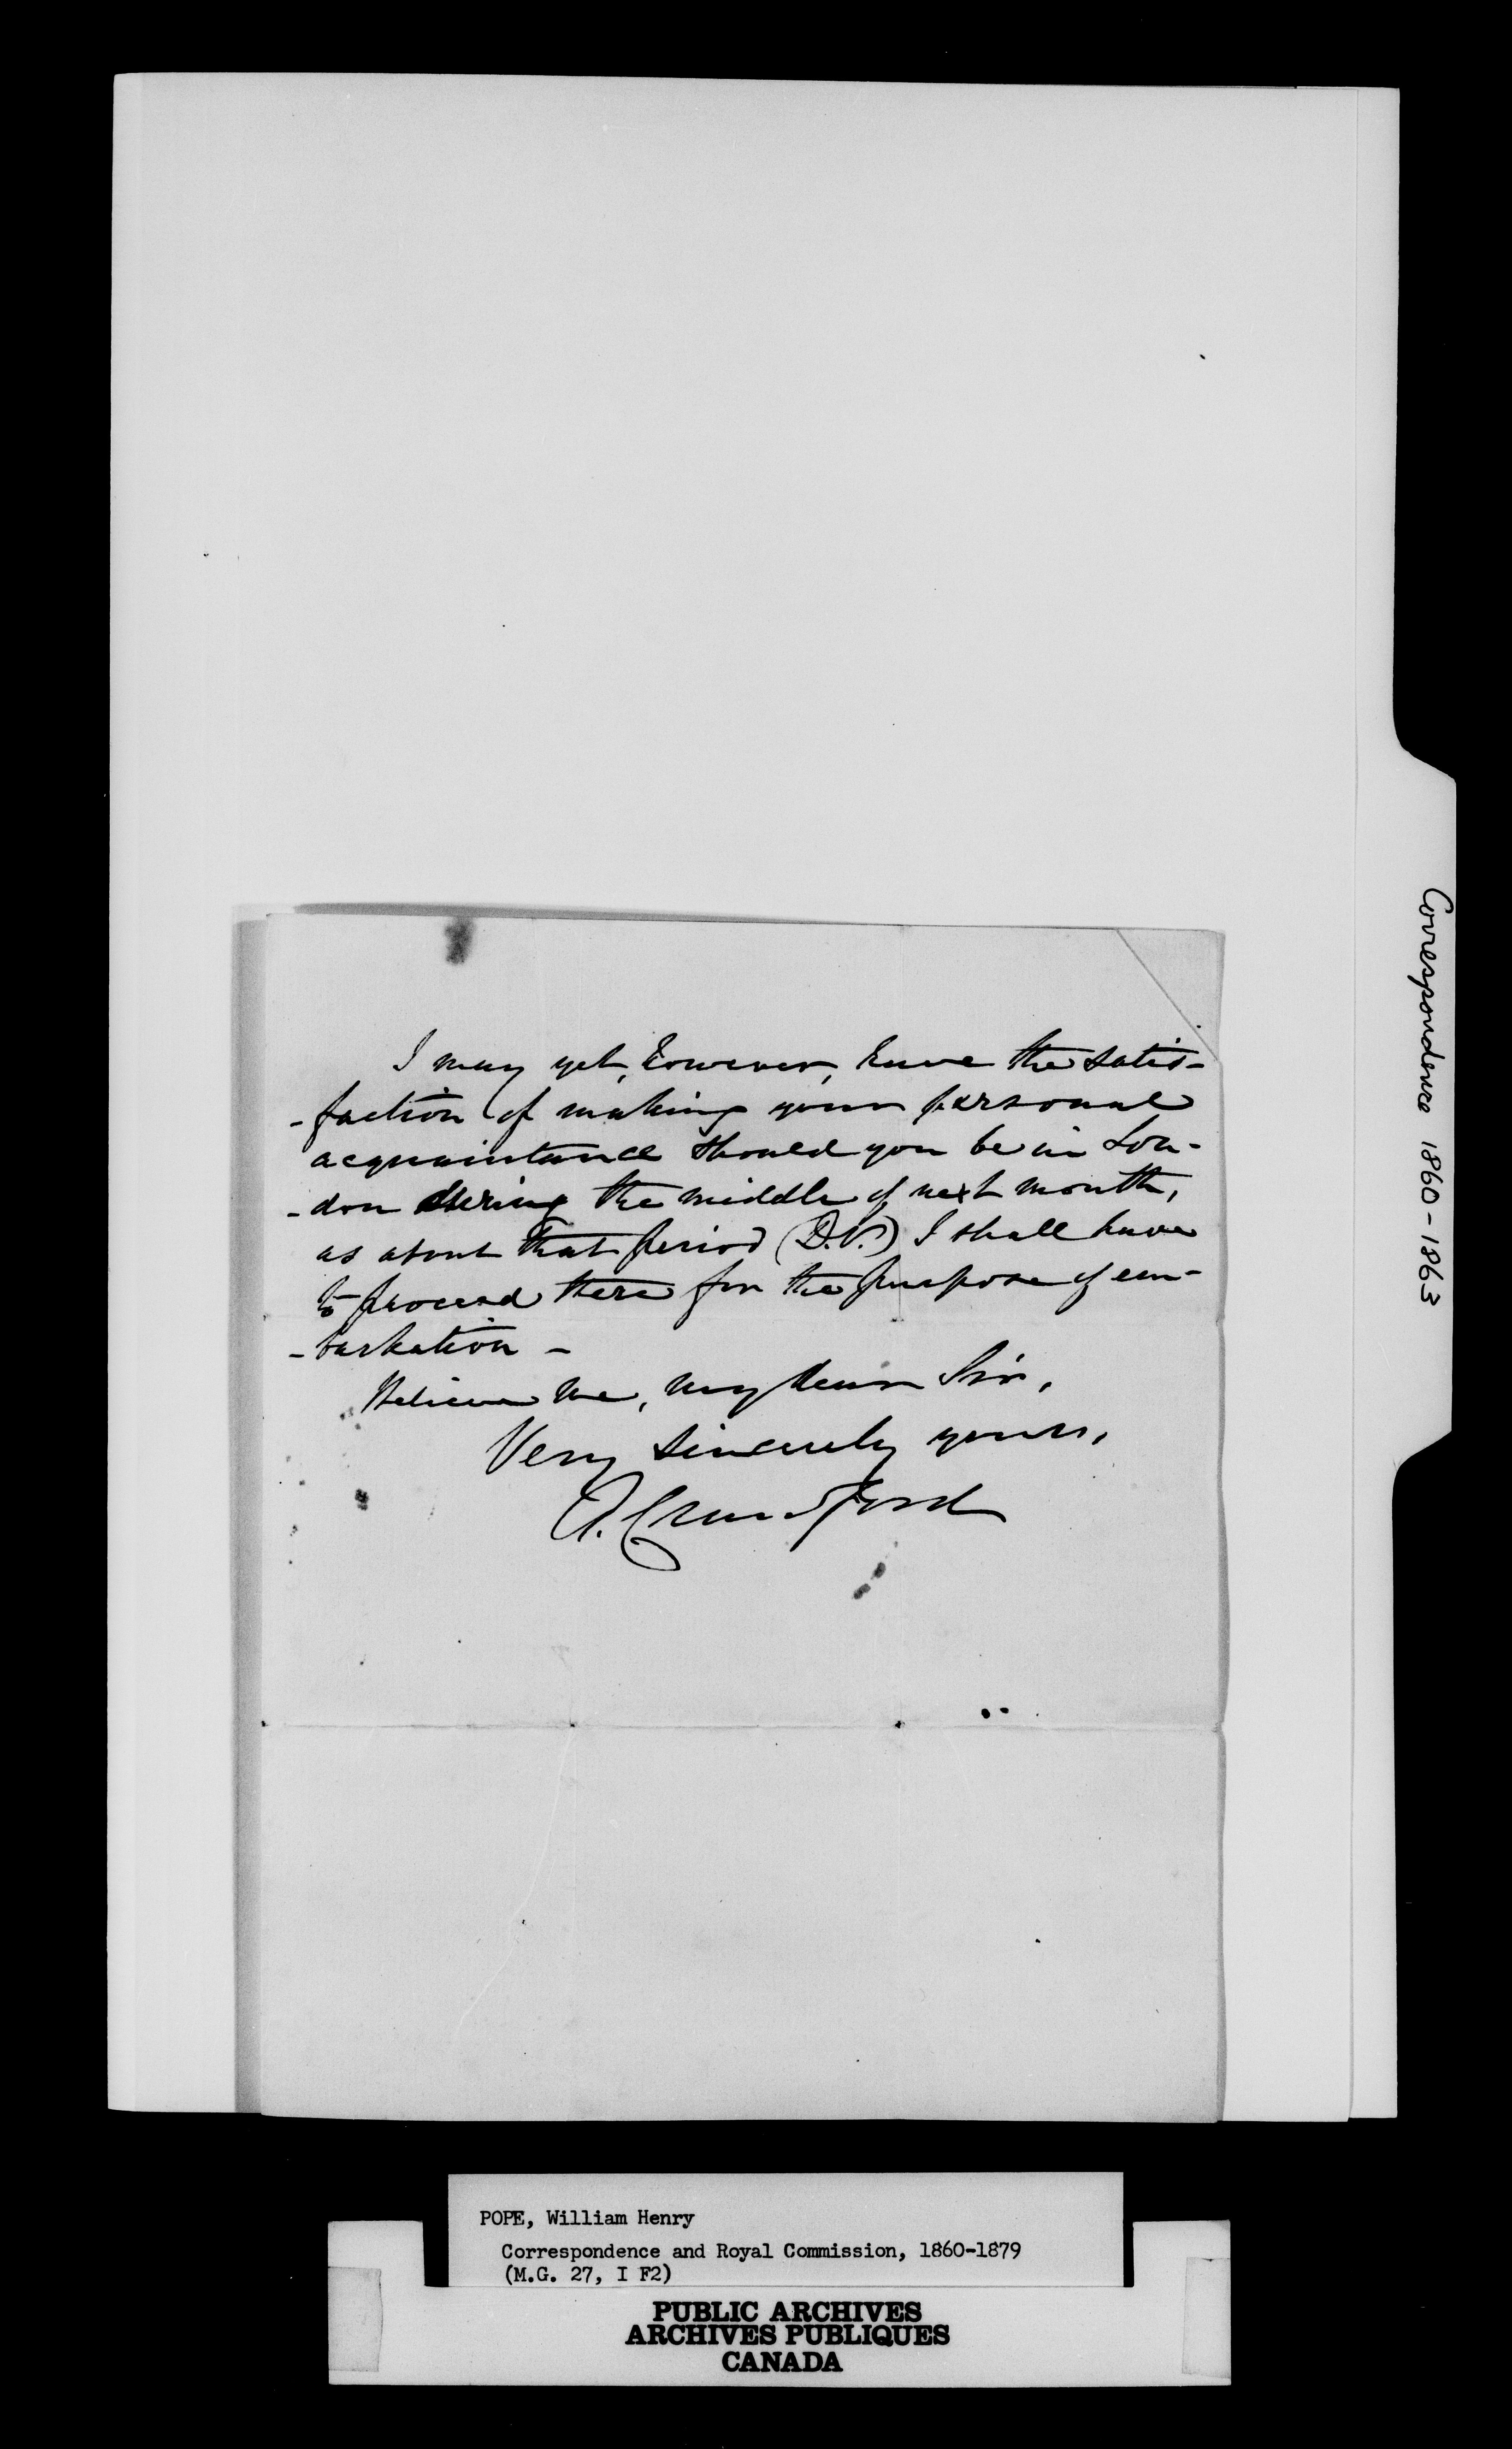 I may yet, however, have the satis-
-faction of making your personal
acquaintance should you be in Lon-
-don during the middle of next month,
as about that period (D.V.) I shall have
to proceed there for the purpose of em-
-barkation -
Believe me, my dear Sir,
Very sincerely yours,
A. Crawford
Correspondence 1860-1863
POPE, William Henry
Correspondence and Royal Commission, 1860-1879
(M.G. 27, I F2)
PUBLIC ARCHIVES
ARCHIVES PUBLIQUES
CANADA